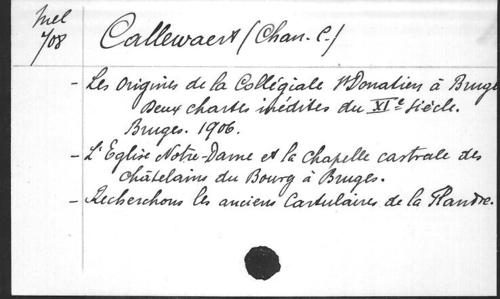 Mel
708
Callewaert (Chan. C.)
- Les origines de la Collégiale St Donatien à Bruge
Deux chartes inédites du XIe siècle.
Bruges. 1906.
- L'Eglise Notre-Dame et la chapelle castrale des
châtelains du Bourg à Bruges.
- Recherchons les anciens Cartulaires de la Flandre.